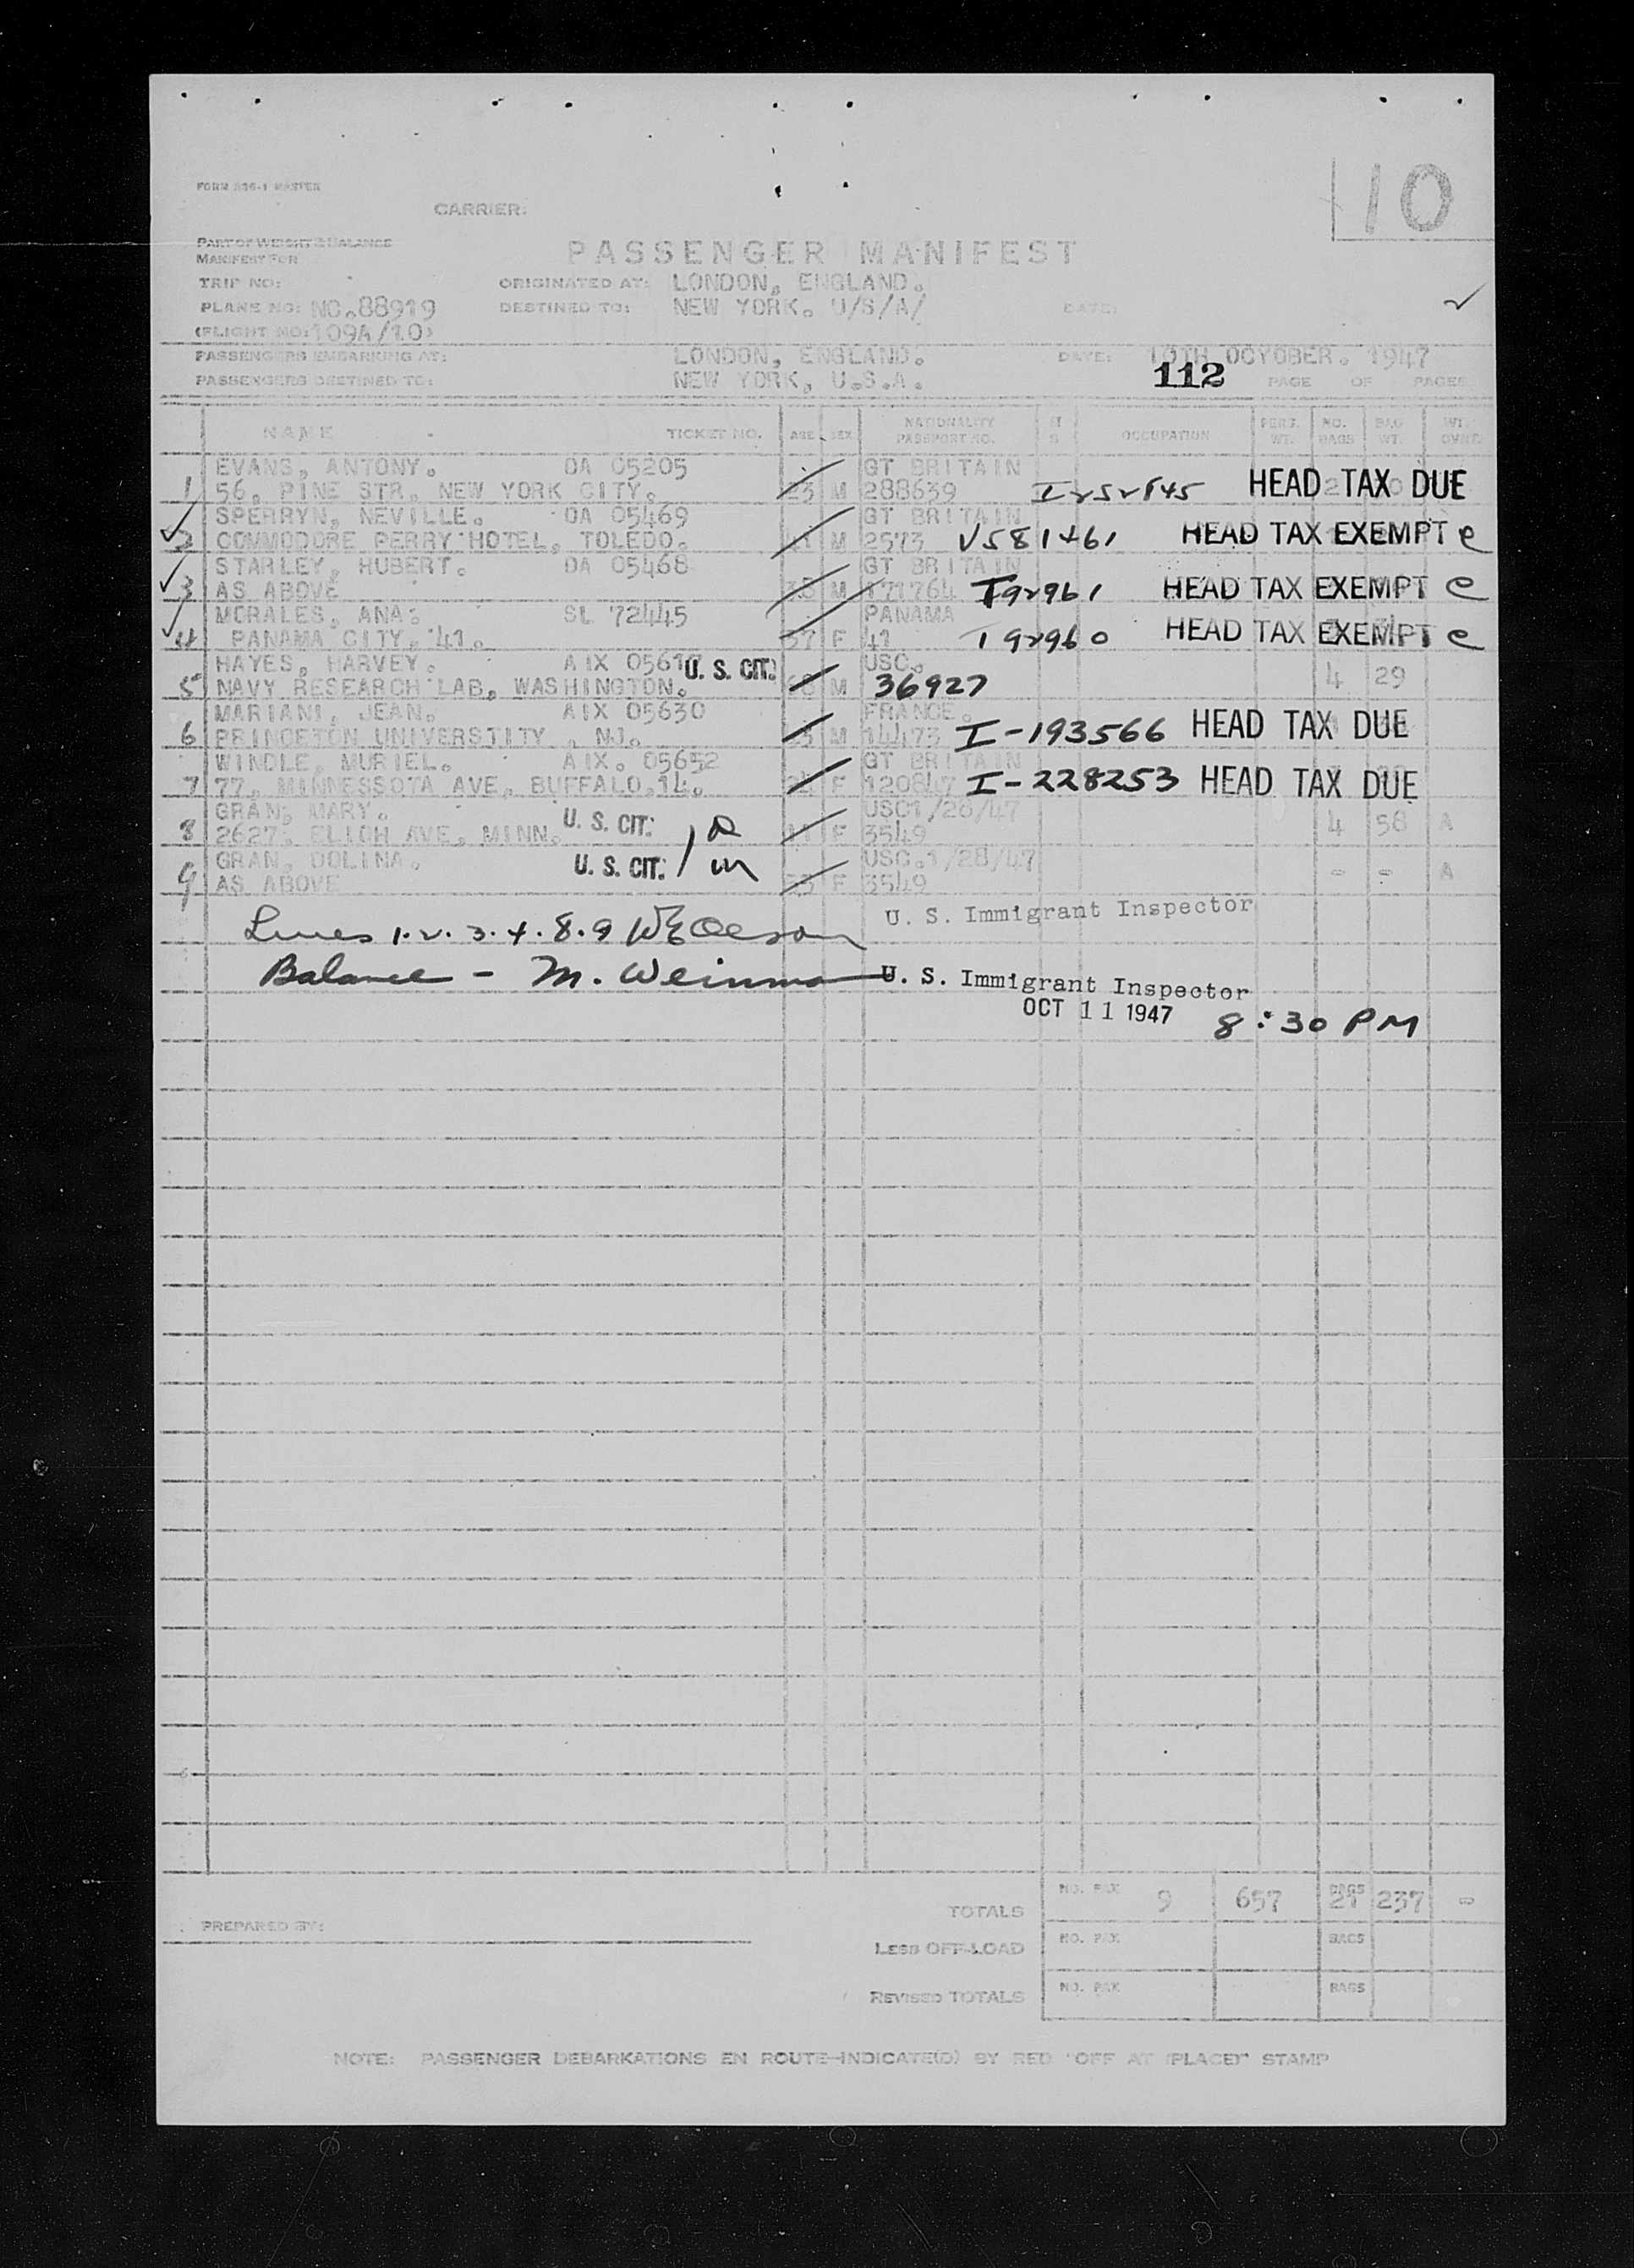 10
FORM 836-1 MASTER
CARRIER:
PART OF WEIGHT & BALANCE
MANIFEST FOR
PASSENGER MANIFEST
TRIP NO: ORIGINATED AT: LONDON, ENGLAND.
PLANE NO: NC.88919 DESTINED TO: NEW YORK. U/S/A/ DATE:
(FLIGHT NO: 109A/10)
PASSENGERS EMBARKING AT: LONDON, ENGLAND. DATE: 10TH OCYOBER. 1947
PASSENGERS DESTINED TO: NEW YORK, U.S.A. 112 PAGE OF PAGES
NAME TICKET NO. AGE SEX NATIONALITY PASSPORT NO. OCCUPATION PERS. WT. NO. BAGS BAG WT. WT. OVRE.
EVANS, ANTONY. OA 05205 GT BRITAIN
1 56, PINE STR. NEW YORK CITY. 23 M 288639 HEAD TAX DUE
SPERRYN, NEVILLE. OA 05469 GT BRITAIN
2 COMMODORE PERRY HOTEL, TOLEDO. M 2573 V581461 HEAD TAX EXEMPT e
STARLEY, HUBERT. OA 05468 GT BRITAIN
3 AS ABOVE 38 M 171764 T92961 HEAD TAX EXEMPT e
MORALES, ANA. SL 72445 PANAMA
4 PANAMA CITY, 41. 37 F 41 T92960 HEAD TAX EXEMPT e
HAYES, HARVEY. AIX 0561 U. S. CIT. USC.
5 NAVY RESEARCH LAB, WASHINGTON. 68 M 36927 4 29
MARIANI, JEAN. AIX 05630 FRANCE.
6 PRINCETON UNIVERSTITY , NJ. M 14473 I-193566 HEAD TAX DUE
WINDLE, MURIEL. AIX. 05652 GT BRITAIN
7 77, MINNESSOTA AVE, BUFFALO.14. F 120847 I-228253 HEAD TAX DUE
GRAN, MARY. U. S. CIT. USC1/28/47
8 2627, ELICH AVE, MINN. 11 F 3549 4 58 A
GRAN, DOLINA. U. S. CIT. USC.1/28/47
9 AS ABOVE 53 F 3549 - - A
Lines 1. 2. 3. 4. 8. 9 U. S. Immigrant Inspector
Balance - M. Weinman U. S. Immigrant Inspector
OCT 11 1947 8:30 PM
TOTALS NO. PAX 9 657 BAGS 21 237 -
PREPARED BY:
LESS OFF-LOAD NO. PAX BAGS
REVISED TOTALS NO. PAX BAGS
NOTE: PASSENGER DEBARKATIONS EN ROUTE-INDICATE(D) BY RED "OFF AT (PLACE)" STAMP